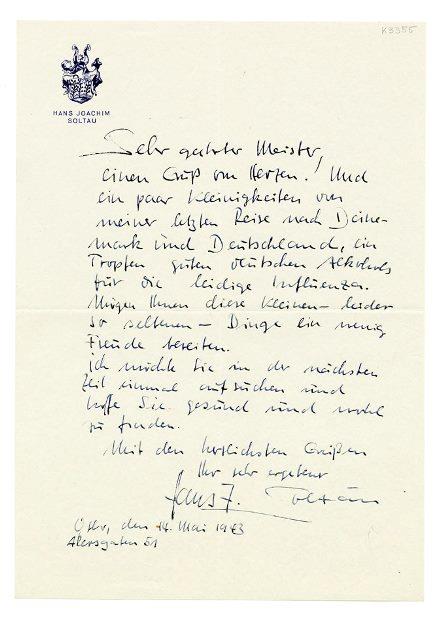 K3355
HANS JOACHIM
SOLTAU
Sehr geehrter Meister,
einen Gruß von Herzen! Und
ein paar Kleinigkeiten von
meiner letzten Reise nach Däne-
mark und Deutschland, ein
Tropfen guten deutschen Alkohols
für die leidige Influenza.
Mögen Ihnen diese kleinen – leider
so seltenen – Dinge ein wenig
Freude bereiten.
Ich möchte Sie in der nächsten
Zeit einmal aufsuchen und
hoffe Sie gesund und wohl
zu finden.
Mit den herzlichsten Grüßen
Ihr sehr ergebener
Hans J. Soltau
Oslo, den 14. Mai 1943
51